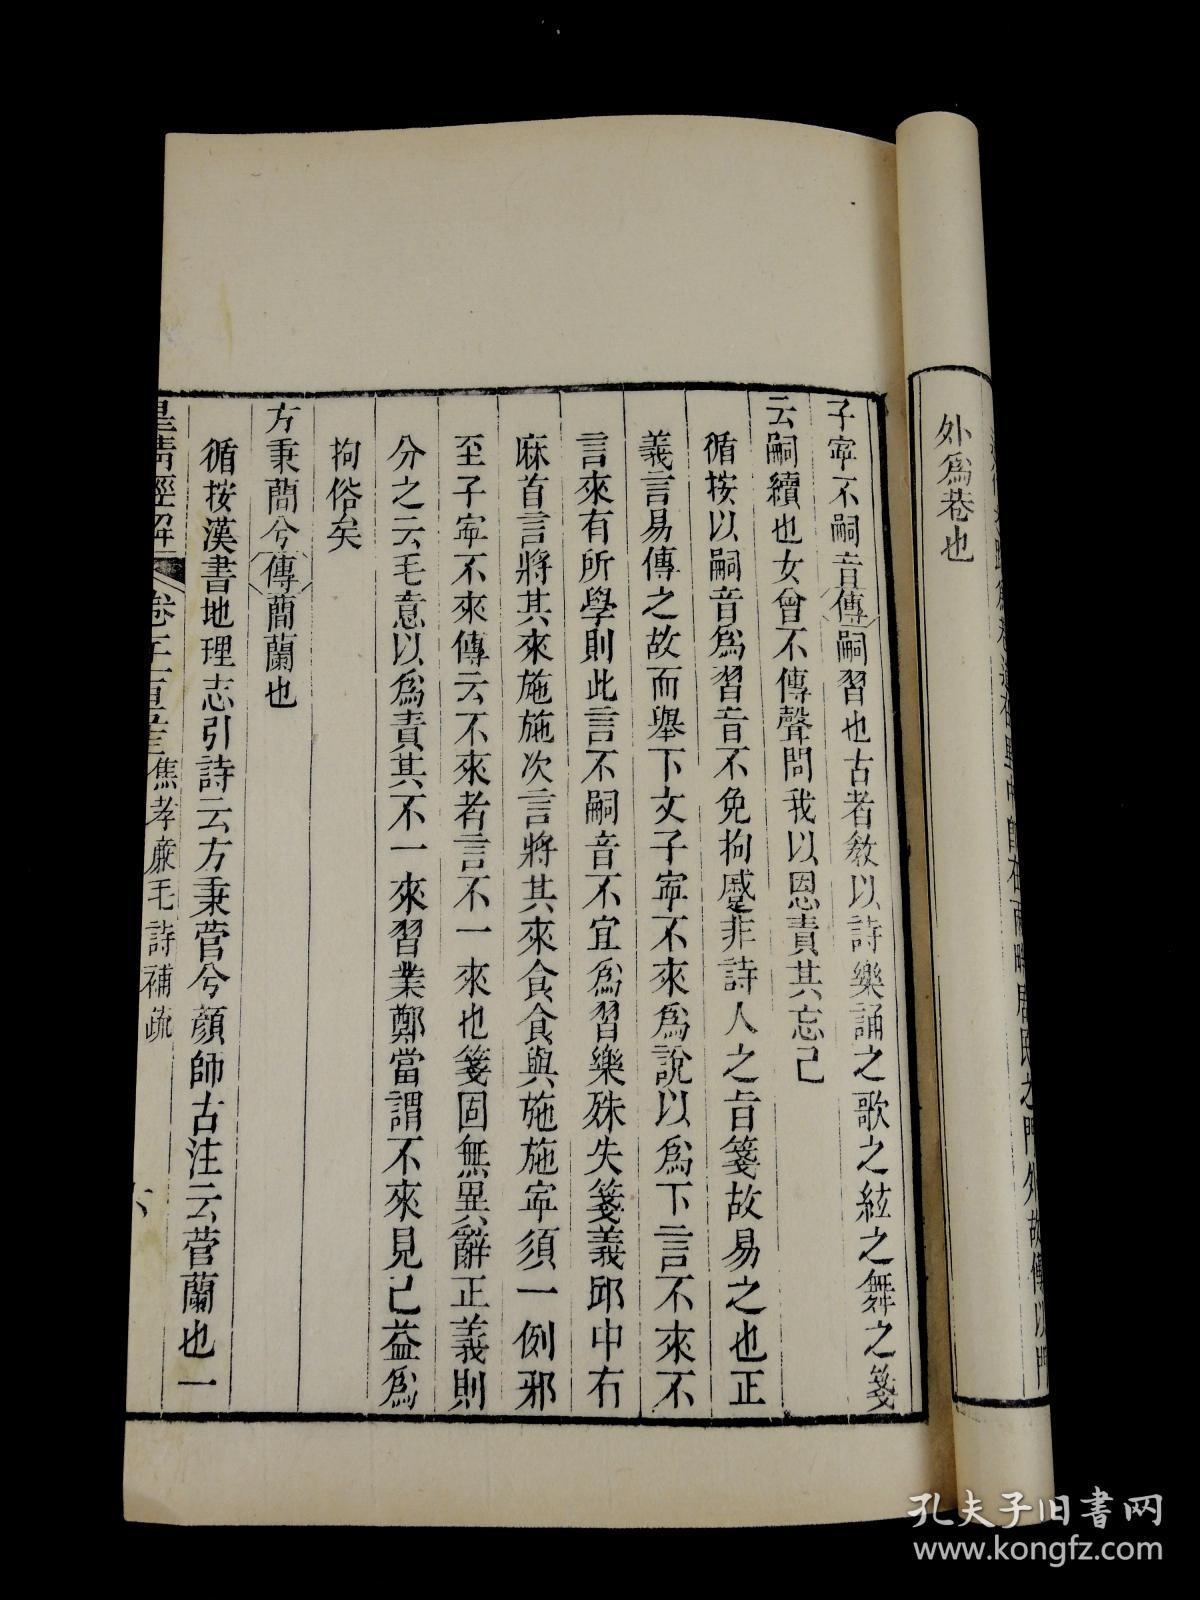 外爲巷也
子寧不嗣音傳嗣習也古者敎以詩樂誦之歌之絃之舞之箋
云嗣續也女曾不傳聲問我以恩責其忘己
循按以嗣音爲習音不免拘蹙非詩人之旨箋故易之也正
義言易傳之故而舉下文子寧不來爲說以爲下言不來不
言來有所學則此言不嗣音不宜爲習樂殊失箋義邱中有
麻首言將其來施施次言將其來食食與施施寧須一例邪
至子寧不來傳云不來者言不一來也箋固無異辭正義則
分之云毛意以爲責其不一來習業鄭當謂不來見己益爲
拘俗矣
方秉蕑兮傳蕑蘭也
循按漢書地理志引詩云方秉菅兮顏師古注云菅蘭也一
皇清經解 卷千一百五十 焦孝廉毛詩補疏
六
孔夫子旧书网
www.kongfz.com